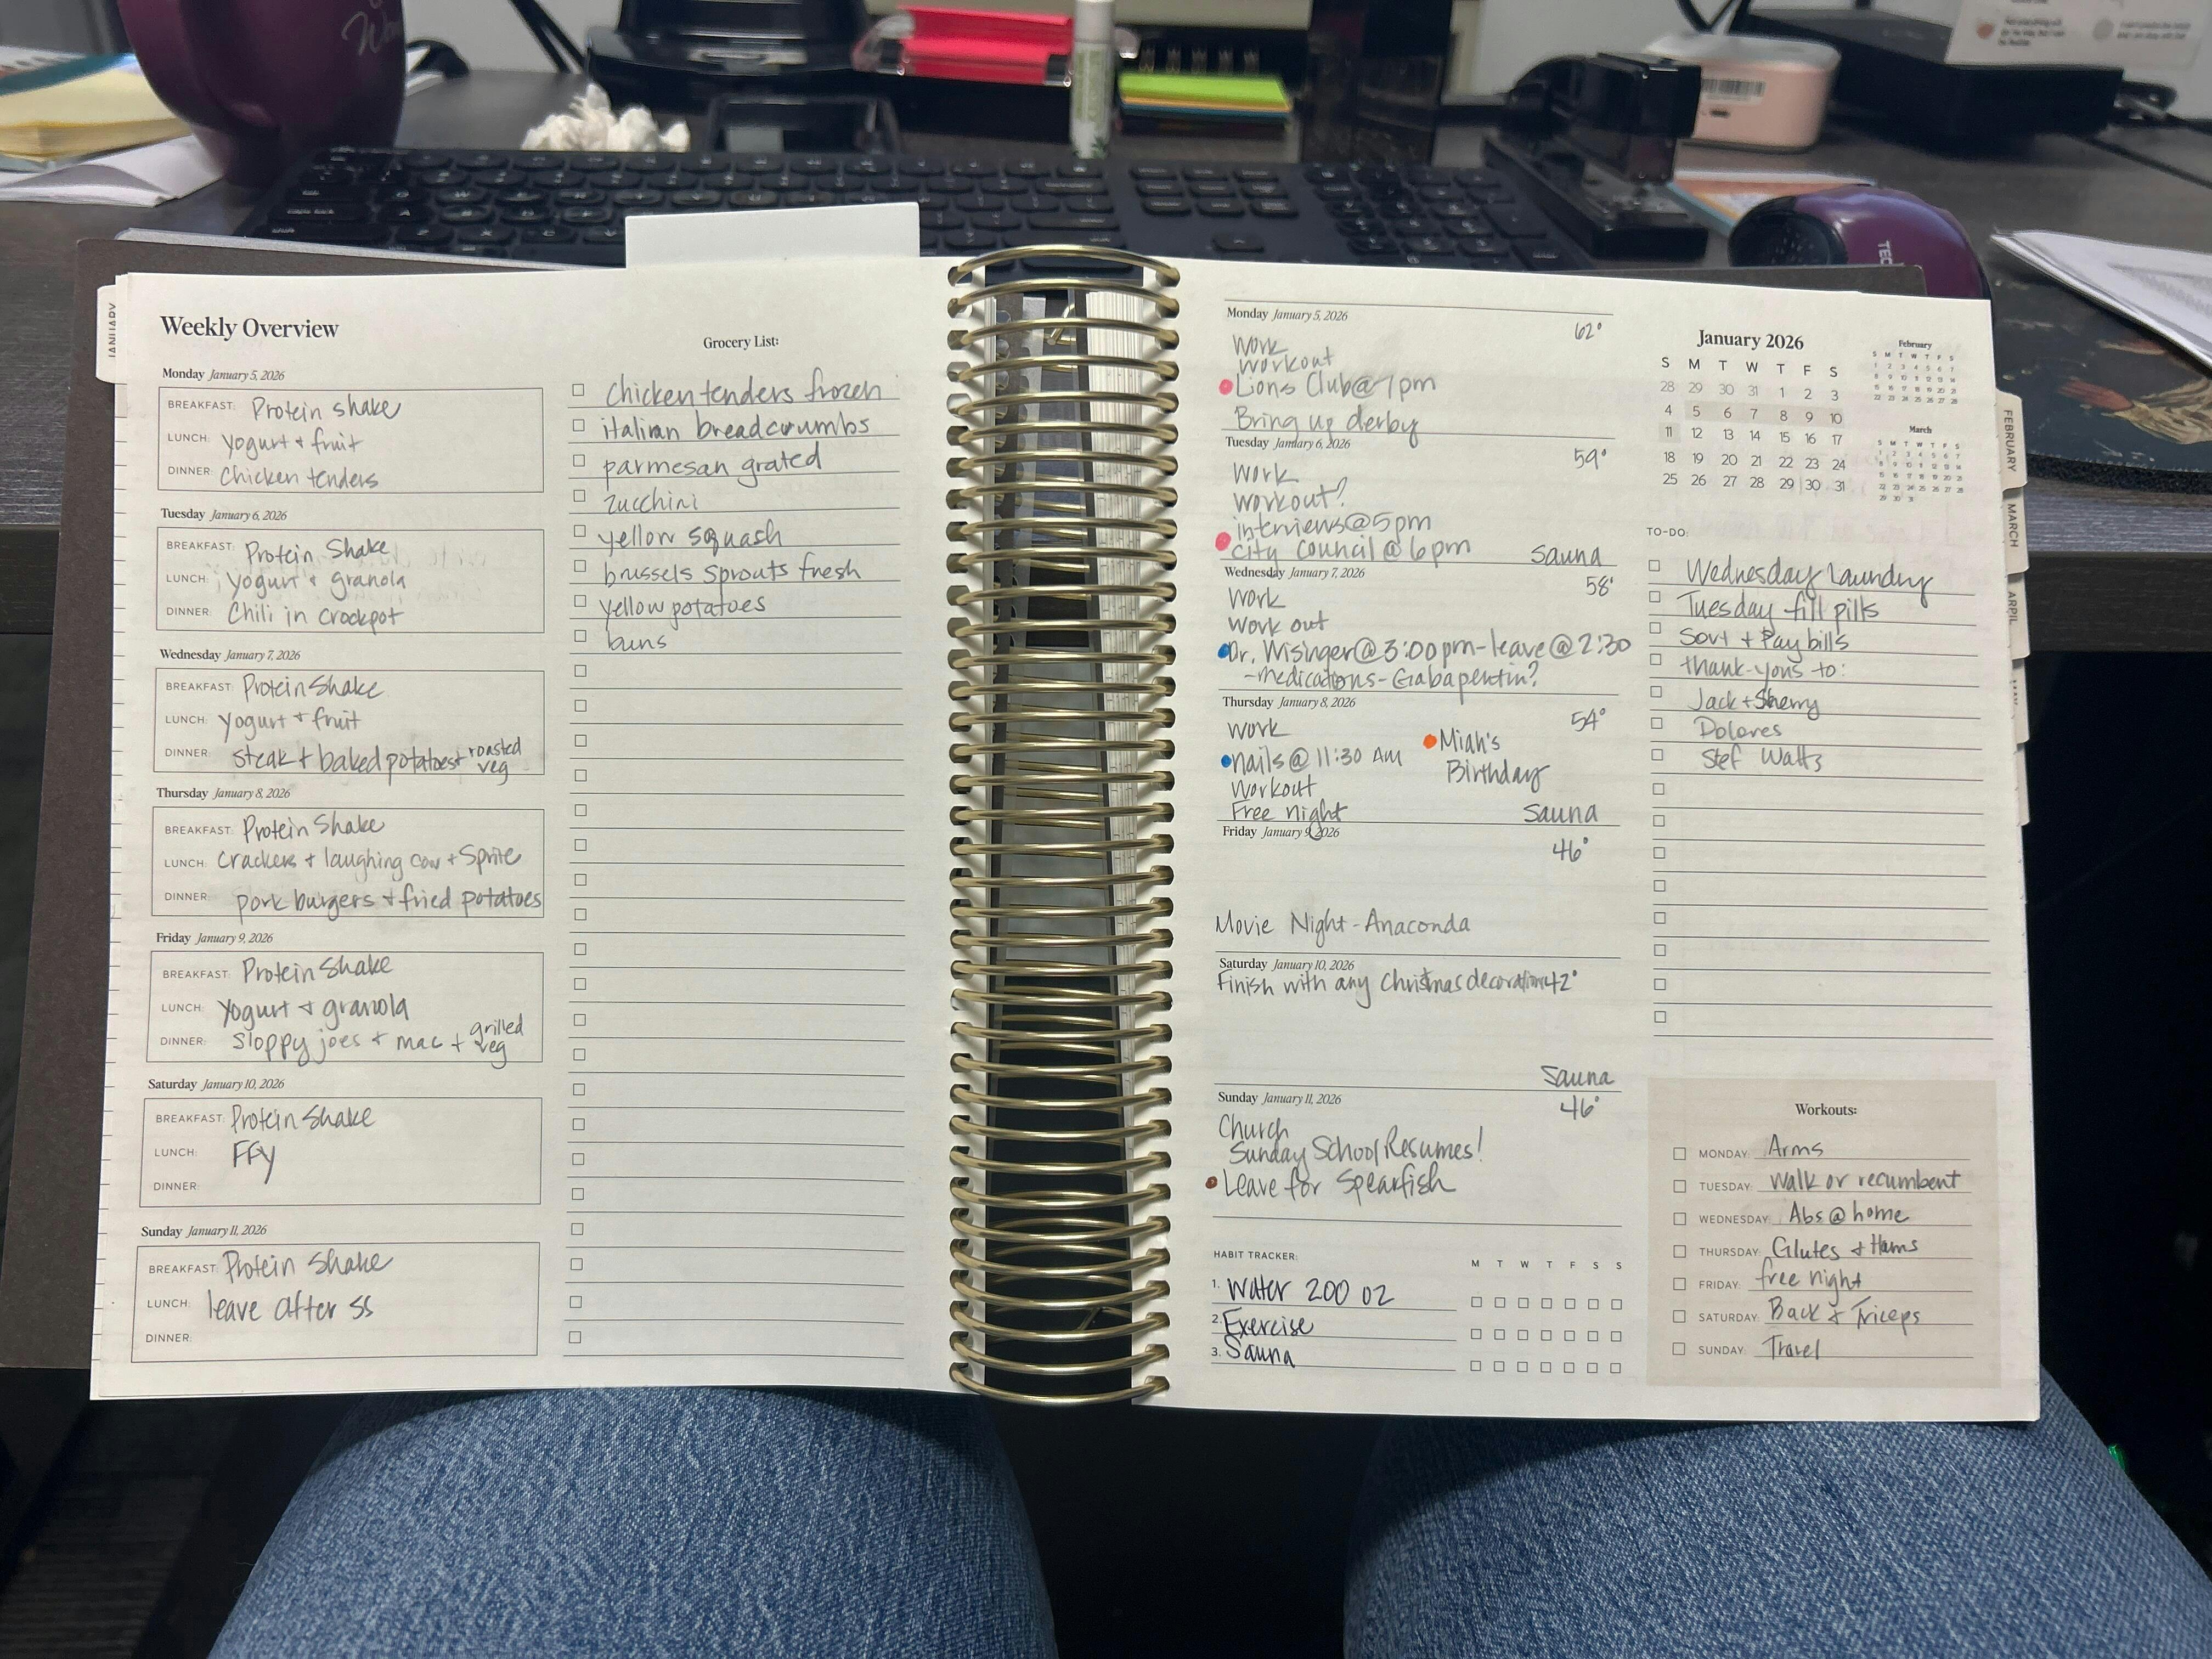 JANUARY
Weekly Overview
Monday January 5, 2026
BREAKFAST: Protein shake
LUNCH: yogurt + fruit
DINNER: Chicken tenders
Tuesday January 6, 2026
BREAKFAST: Protein Shake
LUNCH: yogurt + granola
DINNER: Chili in crockpot
Wednesday January 7, 2026
BREAKFAST: Protein Shake
LUNCH: yogurt + fruit
DINNER: steak + baked potatoes + roasted veg
Thursday January 8, 2026
BREAKFAST: Protein Shake
LUNCH: crackers + laughing cow + Sprite
DINNER: pork burgers + fried potatoes
Friday January 9, 2026
BREAKFAST: Protein Shake
LUNCH: yogurt + granola
DINNER: sloppy joes + mac + grilled veg
Saturday January 10, 2026
BREAKFAST: Protein Shake
LUNCH: FFY
DINNER:
Sunday January 11, 2026
BREAKFAST: Protein Shake
LUNCH: leave after SS
DINNER:
Grocery List:
Chicken tenders frozen
italian breadcrumbs
parmesan grated
zucchini
yellow squash
brussels sprouts fresh
yellow potatoes
buns
Monday January 5, 2026
62°
Work
Workout
Lions Club @ 7pm
Bring up derby
Tuesday January 6, 2026
59°
Work
Workout?
interviews @ 5pm
City Council @ 6pm Sauna
Wednesday January 7, 2026
58°
Work
Work out
Dr. Wisinger @ 3:00pm - leave @ 2:30
- medications - Gabapentin?
Thursday January 8, 2026
54°
Work
Miah's
Birthday
nails @ 11:30 AM
Workout
Free night Sauna
Friday January 9, 2026
46°
Movie Night - Anaconda
Saturday January 10, 2026
Finish with any Christmas decorations 42°
Sauna
Sunday January 11, 2026
46°
Church
Sunday School Resumes!
Leave for Spearfish
HABIT TRACKER: M T W T F S S
1. Water 200 oz
2. Exercise
3. Sauna
January 2026
S M T W T F S
28 29 30 31 1 2 3
4 5 6 7 8 9 10
11 12 13 14 15 16 17
18 19 20 21 22 23 24
25 26 27 28 29 30 31
February
S M T W T F S
1 2 3 4 5 6 7
8 9 10 11 12 13 14
15 16 17 18 19 20 21
22 23 24 25 26 27 28
March
S M T W T F S
1 2 3 4 5 6 7
8 9 10 11 12 13 14
15 16 17 18 19 20 21
22 23 24 25 26 27 28
29 30 31
TO-DO:
Wednesday Laundry
Tuesday fill pills
Sort + Pay bills
thank-yous to:
Jack + Sherry
Dolores
Stef Watts
Workouts:
MONDAY: Arms
TUESDAY: Walk or recumbent
WEDNESDAY: Abs @ home
THURSDAY: Glutes + Hams
FRIDAY: free night
SATURDAY: Back & Triceps
SUNDAY: Travel
FEBRUARY
MARCH
ARPIL